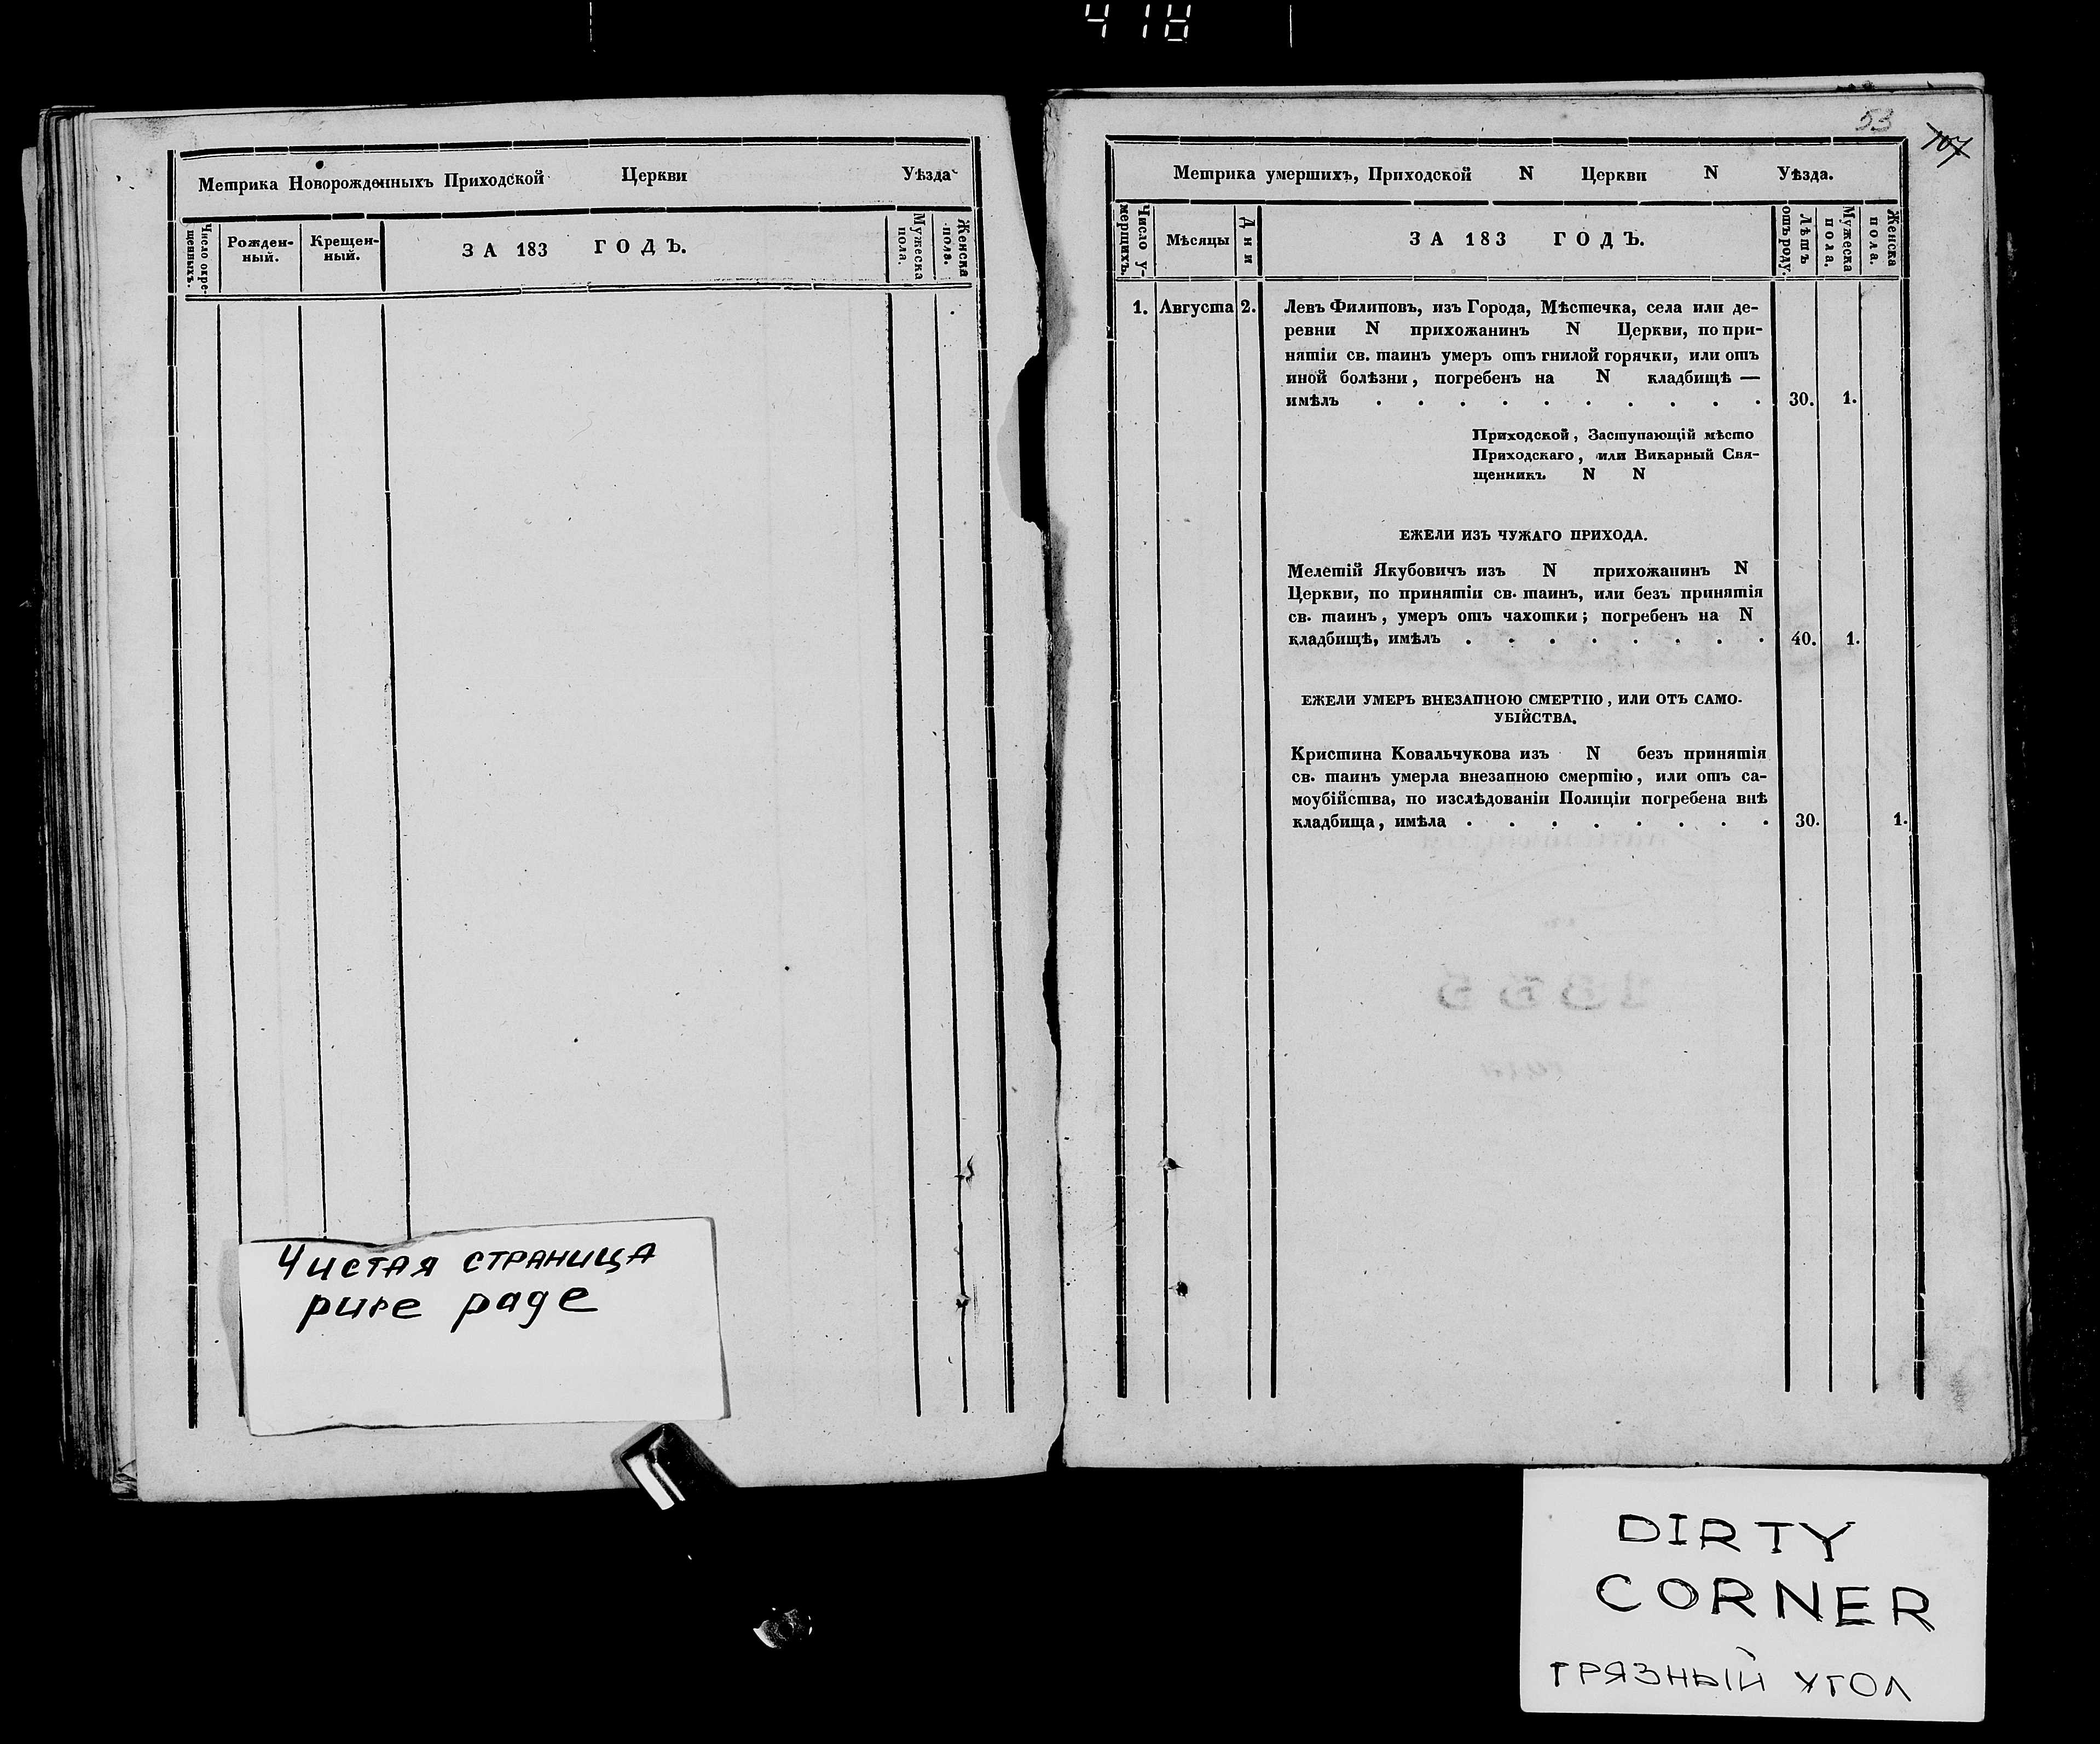 418
Метрика Новорожденныхъ Приходской Церкви Уѣзда
Число окре-
щенныхъ.
Рожден-
ный.
Крещен-
ный.
ЗА 183 ГОДЪ.
Мужеска
пола.
Женска
пола.
Чистая страница
pure page
53
107
Метрика умершихъ, Приходской N Церкви N Уѣзда.
Число у-
мершихъ.
Мѣсяцы
Дни
ЗА 183 ГОДЪ.
Лѣтъ
отъ роду.
Мужеска
пола.
Женска
пола.
1. Августа 2. Левъ Филиповъ, изъ Города, Мѣстечка, села или де-
ревни N прихожанинъ N Церкви, по при-
нятіи св. таинъ умеръ отъ гнилой горячки, или отъ
иной болѣзни, погребенъ на N кладбищѣ —
имѣлъ . . . . . . . . . . 30. 1.
Приходской, Заступающій мѣсто
Приходскаго, или Викарный Свя-
щенникъ N N
ЕЖЕЛИ ИЗЪ ЧУЖАГО ПРИХОДА.
Мелетій Якубовичъ изъ N прихожанинъ N
Церкви, по принятіи св. таинъ, или безъ принятія
св. таинъ, умеръ отъ чахотки; погребенъ на N
кладбищѣ, имѣлъ . . . . . . . . 40. 1.
ЕЖЕЛИ УМЕРЪ ВНЕЗАПНОЮ СМЕРТІЮ, ИЛИ ОТЪ САМО-
УБІЙСТВА.
Кристина Ковальчукова изъ N безъ принятія
св. таинъ умерла внезапною смертію, или отъ са-
моубійства, по изслѣдованіи Полиціи погребена внѣ
кладбища, имѣла . . . . . . . . 30. 1.
DIRTY
CORNER
ГРЯЗНЫЙ УГОЛ